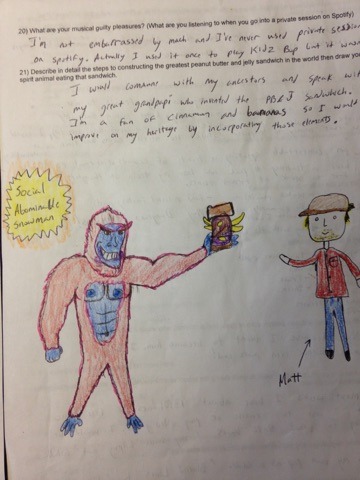 20) What are your musical guilty pleasures? (What are you listening to when you go into a private session on Spotify)
I'm not embarrassed by much and I've never used private session
on spotify. Actually I used it once to play Kidz Bop but it
21) Describe in detail the steps to constructing the greatest peanut butter and jelly sandwich in the world then draw
spirit animal eating that sandwich.
I would commune with my ancestors and speak
my great grandpapi who invented the PB&J sandwhich.
I'm a fan of cinnamon and bananas so I would
improve on my heritage by incorporating those elements.
Social
Abominable
Snowman
Matt